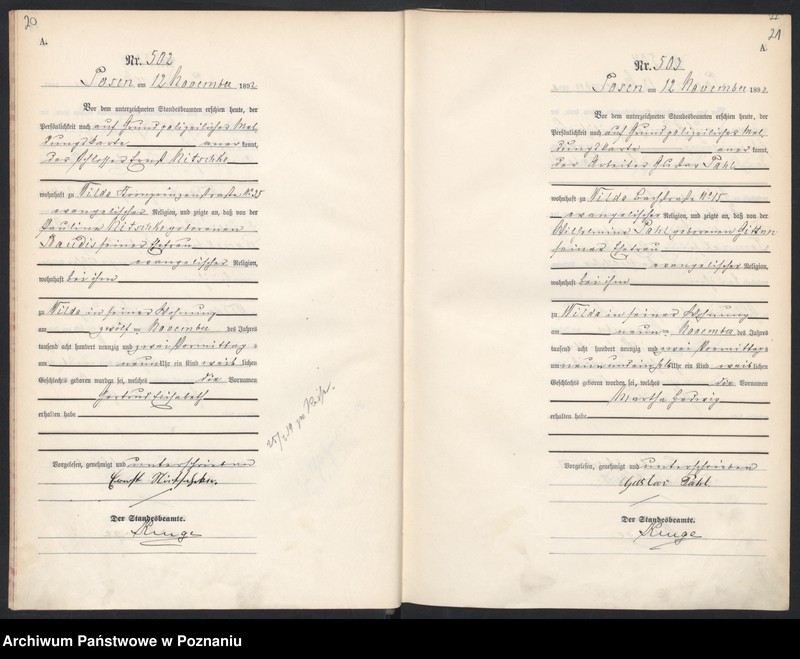 20
A.
Nr. 502
Posen am 12 November 1892
Vor dem unterzeichneten Standesbeamten erschien heute, der
Persönlichkeit nach auf Grund polizeilicher Mel-
dungskarte anerkannt,
der Schlosser Ernst Nitschke
wohnhaft zu Wilda Kronprinzenstraße No 25
evangelischer Religion, und zeigte an, daß von der
Pauline Nitschke geborenen
seiner Ehefrau
evangelischer Religion,
wohnhaft bei ihm
zu Wilda in seiner Wohnung
am November des Jahres
tausend acht hundert neunzig und zwei Vormittags
um neun Uhr ein Kind weiblichen
Geschlechts geboren worden sei, welches die Vornamen
Gertrud Elisabeth
erhalten habe
Vorgelesen, genehmigt und unterschrieben
Ernst Nitschke.
Der Standesbeamte.
21
A
Nr. 503
Posen am 12 November 1892
Vor dem unterzeichneten Standesbeamten erschien heute, der
Persönlichkeit nach auf Grund polizeilicher Mel-
dungskarte anerkannt,
der Arbeiter Gustav Pahl
wohnhaft zu Wilda Bachstraße No 15
evangelischer Religion, und zeigte an, daß von der
Wilhelmine Pahl geborenen
seiner Ehefrau
evangelischer Religion,
wohnhaft bei ihm
zu Wilda in seiner Wohnung
am neun November des Jahres
tausend acht hundert neunzig und zwei Vormittags
um neun und einhalb Uhr ein Kind weiblichen
Geschlechts geboren worden sei, welches die Vornamen
Martha Hedwig
erhalten habe
Vorgelesen, genehmigt und unterschrieben
Gustav Pahl
Der Standesbeamte.
Archiwum Państwowe w Poznaniu